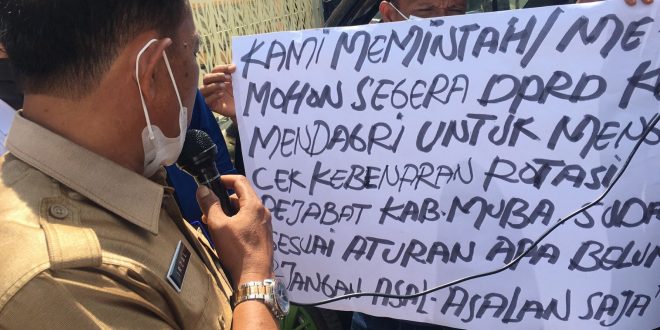 KAMI MEMINTAH/ME
MOHON SEGERA DPRD K
MENDAGRI UNTUK MENG
CEK KEBENARAN ROTASI
PEJABAT KAB. MUBA. SUDA
SESUAI ATURAN APA BELUM
JANGAN ASAL-ASALAN SAJA"